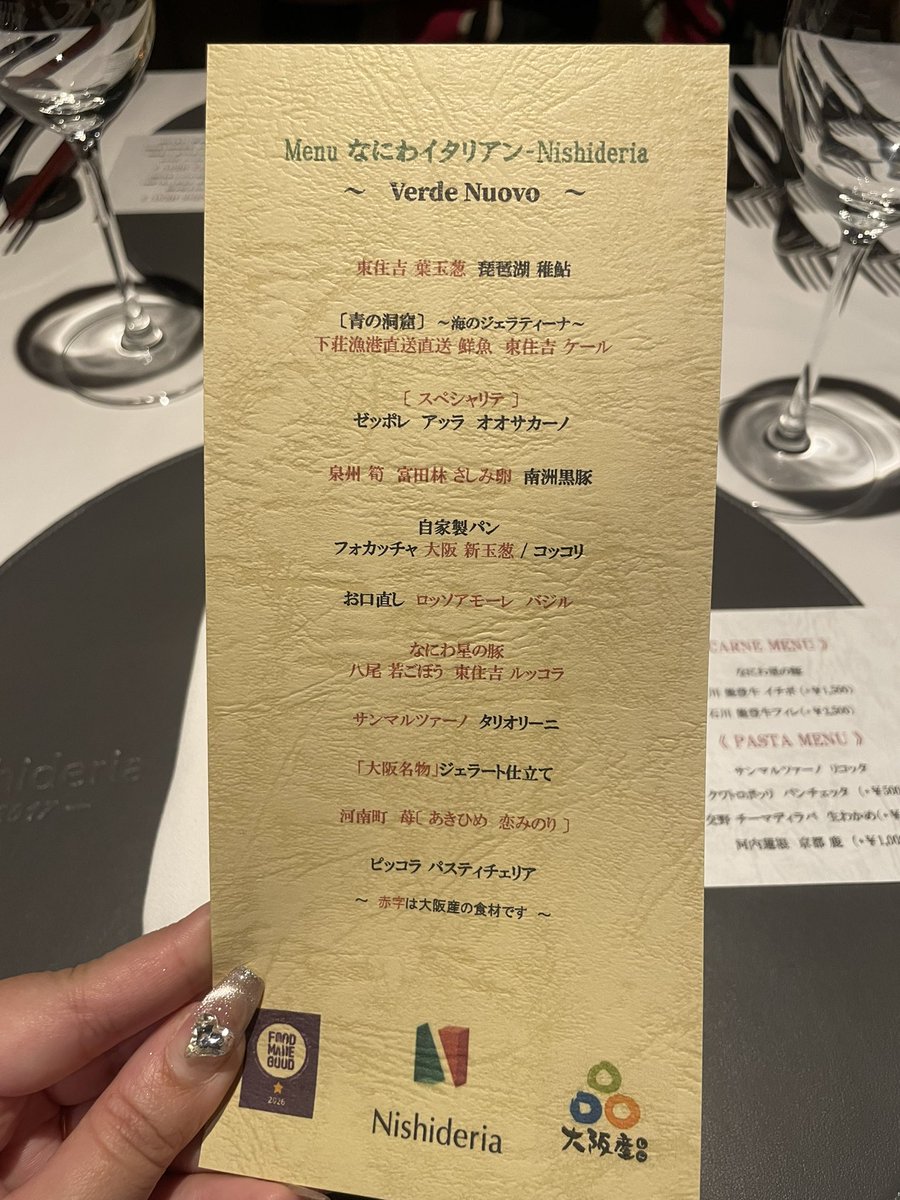 Menu なにわイタリアン-Nishideria
～ Verde Nuovo ～
東住吉 葉玉葱 琵琶湖 稚鮎
〔青の洞窟〕 ～海のジェラティーナ～
下荘漁港直送直送 鮮魚 東住吉 ケール
〔 スペシャリテ 〕
ゼッポレ アッラ オオサカーノ
泉州 筍 富田林 さしみ卵 南洲黒豚
自家製パン
フォカッチャ 大阪 新玉葱 / コッコリ
お口直し ロッソアモーレ バジル
なにわ星の豚
八尾 若ごぼう 東住吉 ルッコラ
サンマルツァーノ タリオリーニ
「大阪名物」ジェラート仕立て
河南町 苺〔 あきひめ 恋みのり 〕
ピッコラ パスティチェリア
～ 赤字は大阪産の食材です ～
FOOD
MADE
GOOD
2026
Nishideria
大阪産
CARNE MENU 》
なにわ星の豚
川 能登牛 イチボ (+¥1,500)
石川 能登牛フィレ(+¥2,500)
《 PASTA MENU 》
サンマルツァーノ リコッタ
クワトロポッリ パンチェッタ (+¥500
交野 チーマディラパ 生わかめ(+¥
河内蓮根 京都 鹿 (+¥1,00
hideria